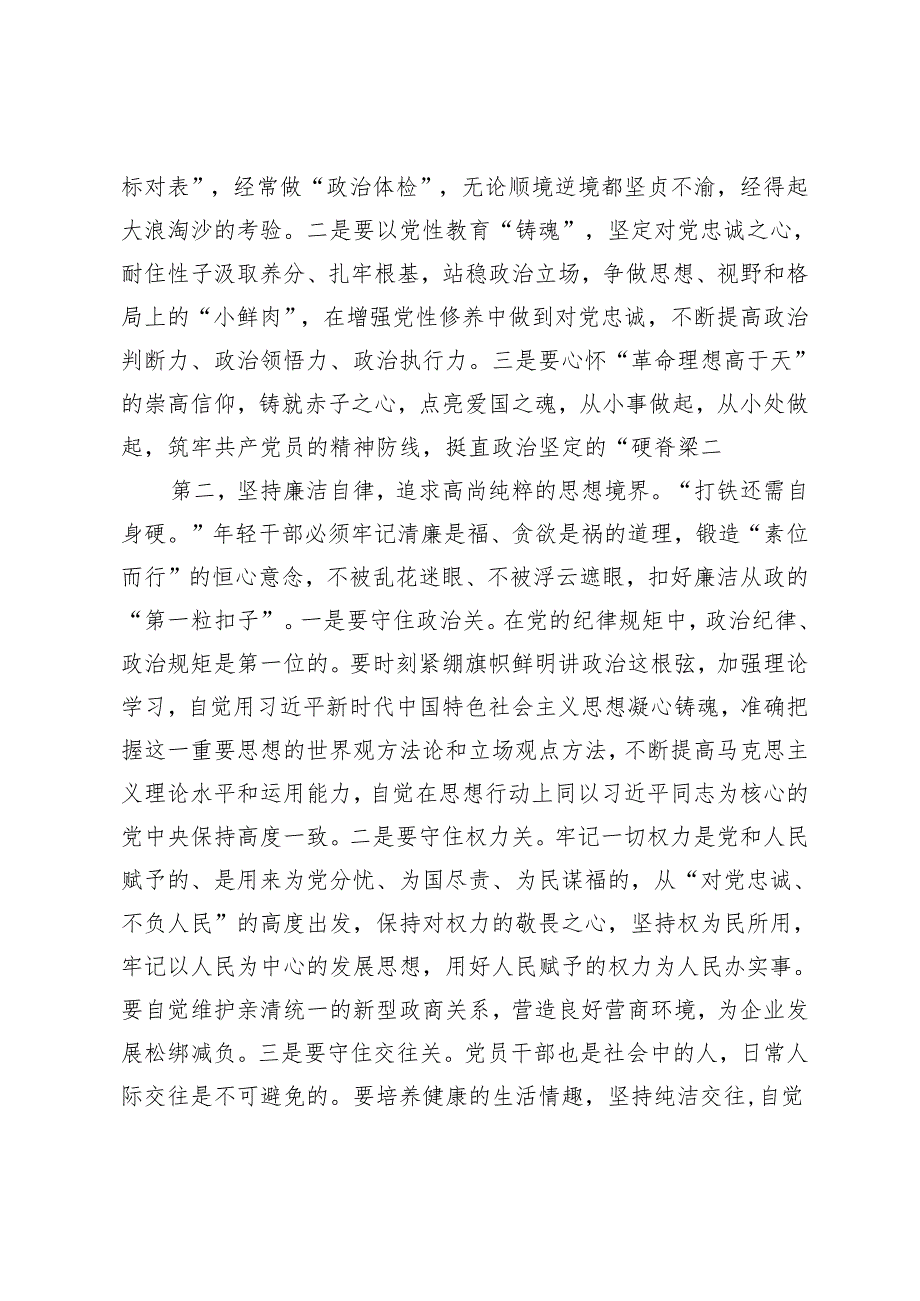 标对表”，经常做“政治体检”，无论顺境逆境都坚贞不渝，经得起
大浪淘沙的考验。二是要以党性教育“铸魂”，坚定对党忠诚之心，
耐住性子汲取养分、扎牢根基，站稳政治立场，争做思想、视野和格
局上的“小鲜肉”，在增强党性修养中做到对党忠诚，不断提高政治
判断力、政治领悟力、政治执行力。三是要心怀“革命理想高于天”
的崇高信仰，铸就赤子之心，点亮爱国之魂，从小事做起，从小处做
起，筑牢共产党员的精神防线，挺直政治坚定的“硬脊梁二
第二，坚持廉洁自律，追求高尚纯粹的思想境界。“打铁还需自
身硬。”年轻干部必须牢记清廉是福、贪欲是祸的道理，锻造“素位
而行”的恒心意念，不被乱花迷眼、不被浮云遮眼，扣好廉洁从政的
“第一粒扣子”。一是要守住政治关。在党的纪律规矩中，政治纪律、
政治规矩是第一位的。要时刻紧绷旗帜鲜明讲政治这根弦，加强理论
学习，自觉用习近平新时代中国特色社会主义思想凝心铸魂，准确把
握这一重要思想的世界观方法论和立场观点方法，不断提高马克思主
义理论水平和运用能力，自觉在思想行动上同以习近平同志为核心的
党中央保持高度一致。二是要守住权力关。牢记一切权力是党和人民
赋予的、是用来为党分忧、为国尽责、为民谋福的，从“对党忠诚、
不负人民”的高度出发，保持对权力的敬畏之心，坚持权为民所用，
牢记以人民为中心的发展思想，用好人民赋予的权力为人民办实事。
要自觉维护亲清统一的新型政商关系，营造良好营商环境，为企业发
展松绑减负。三是要守住交往关。党员干部也是社会中的人，日常人
际交往是不可避免的。要培养健康的生活情趣，坚持纯洁交往,自觉